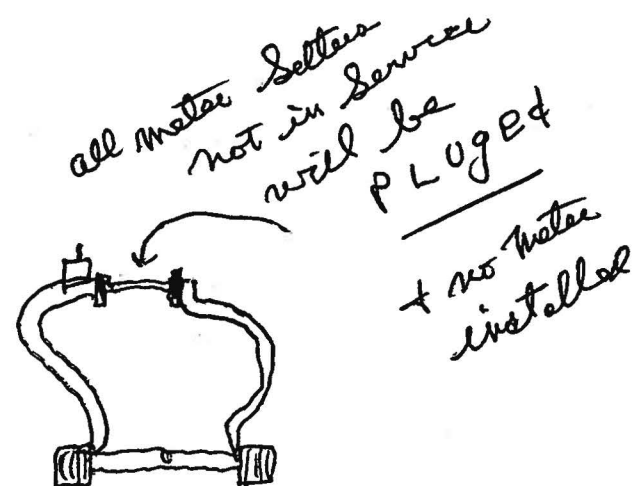 all meter Setters
not in Service
will be
PLUgEd
+ no meter
installed